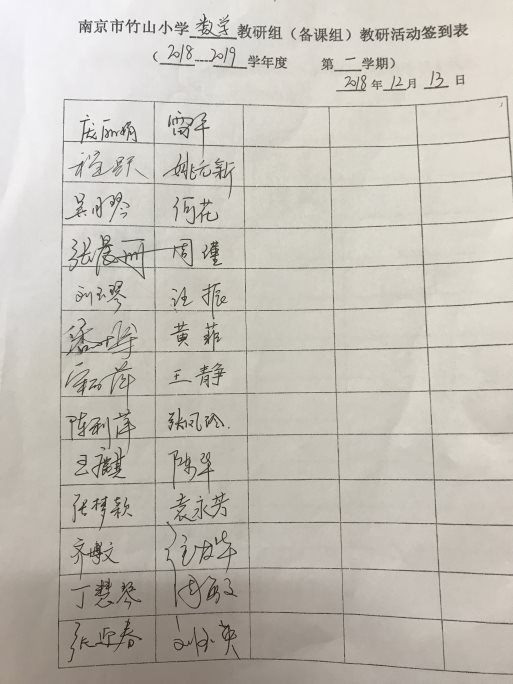 南京市竹山小学数学教研组（备课组）教研活动签到表
（2018——2019学年度 第二学期）
2018年12月13日
庞丽娟 雷平
程跃 姚元新
吴月琴 何花
张晨 周瑾
刘玉琴 汪振
黄菲
王静
陈利萍 张凤玲
王麒 陈华
张梦颖 袁永芳
齐博文
丁慧琴 周敏
张迎春